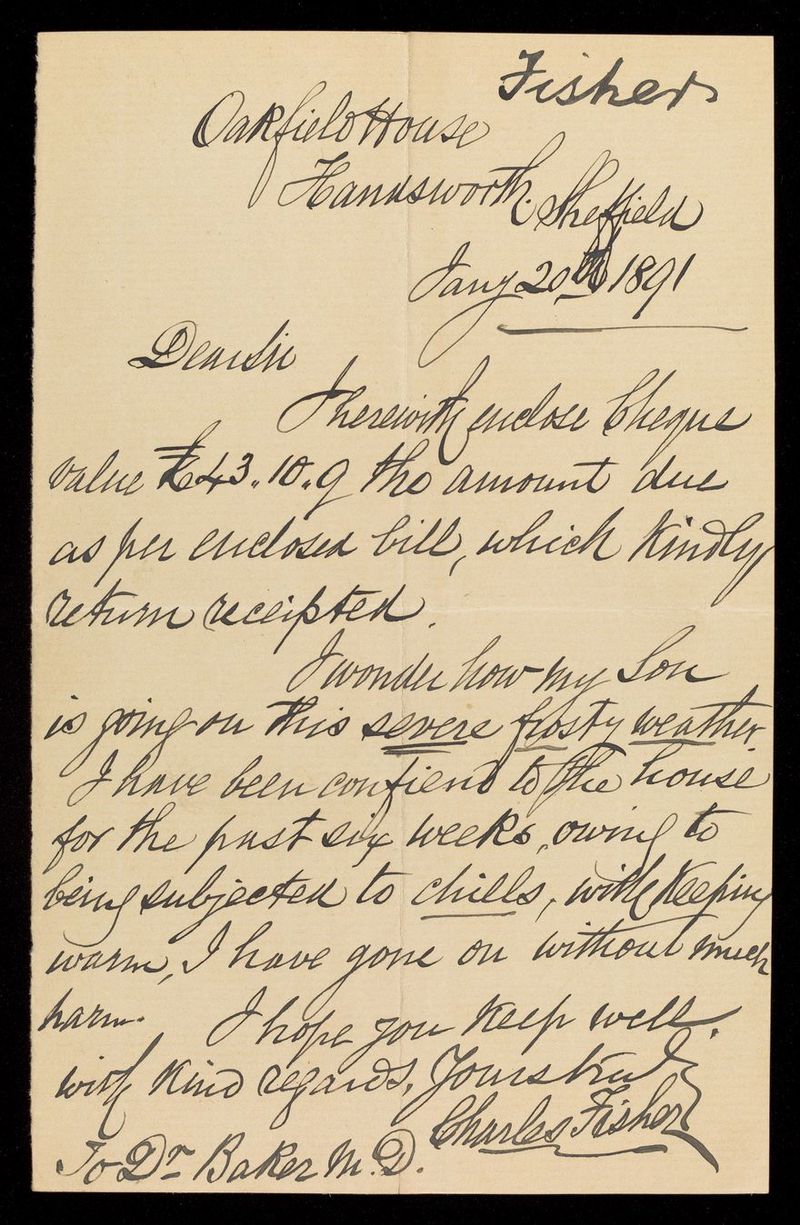 Fisher
Oakfield House
Handsworth. Sheffield
Jany 20th 1891
Dear Sir
I herewith enclose Cheque
value £43.. 10.. 9 the amount due
as per enclosed bill, which kindly
return receipted.
I wonder how my Son
is going on this severe frosty weather.
I have been confiend to the house
for the past six weeks, owing to
being subjected to chills, with keeping
warm, I have gone on without much
harm. I hope you keep well.
with kind regards, Yours truly
Charles Fisher
To Dr Baker M.D.